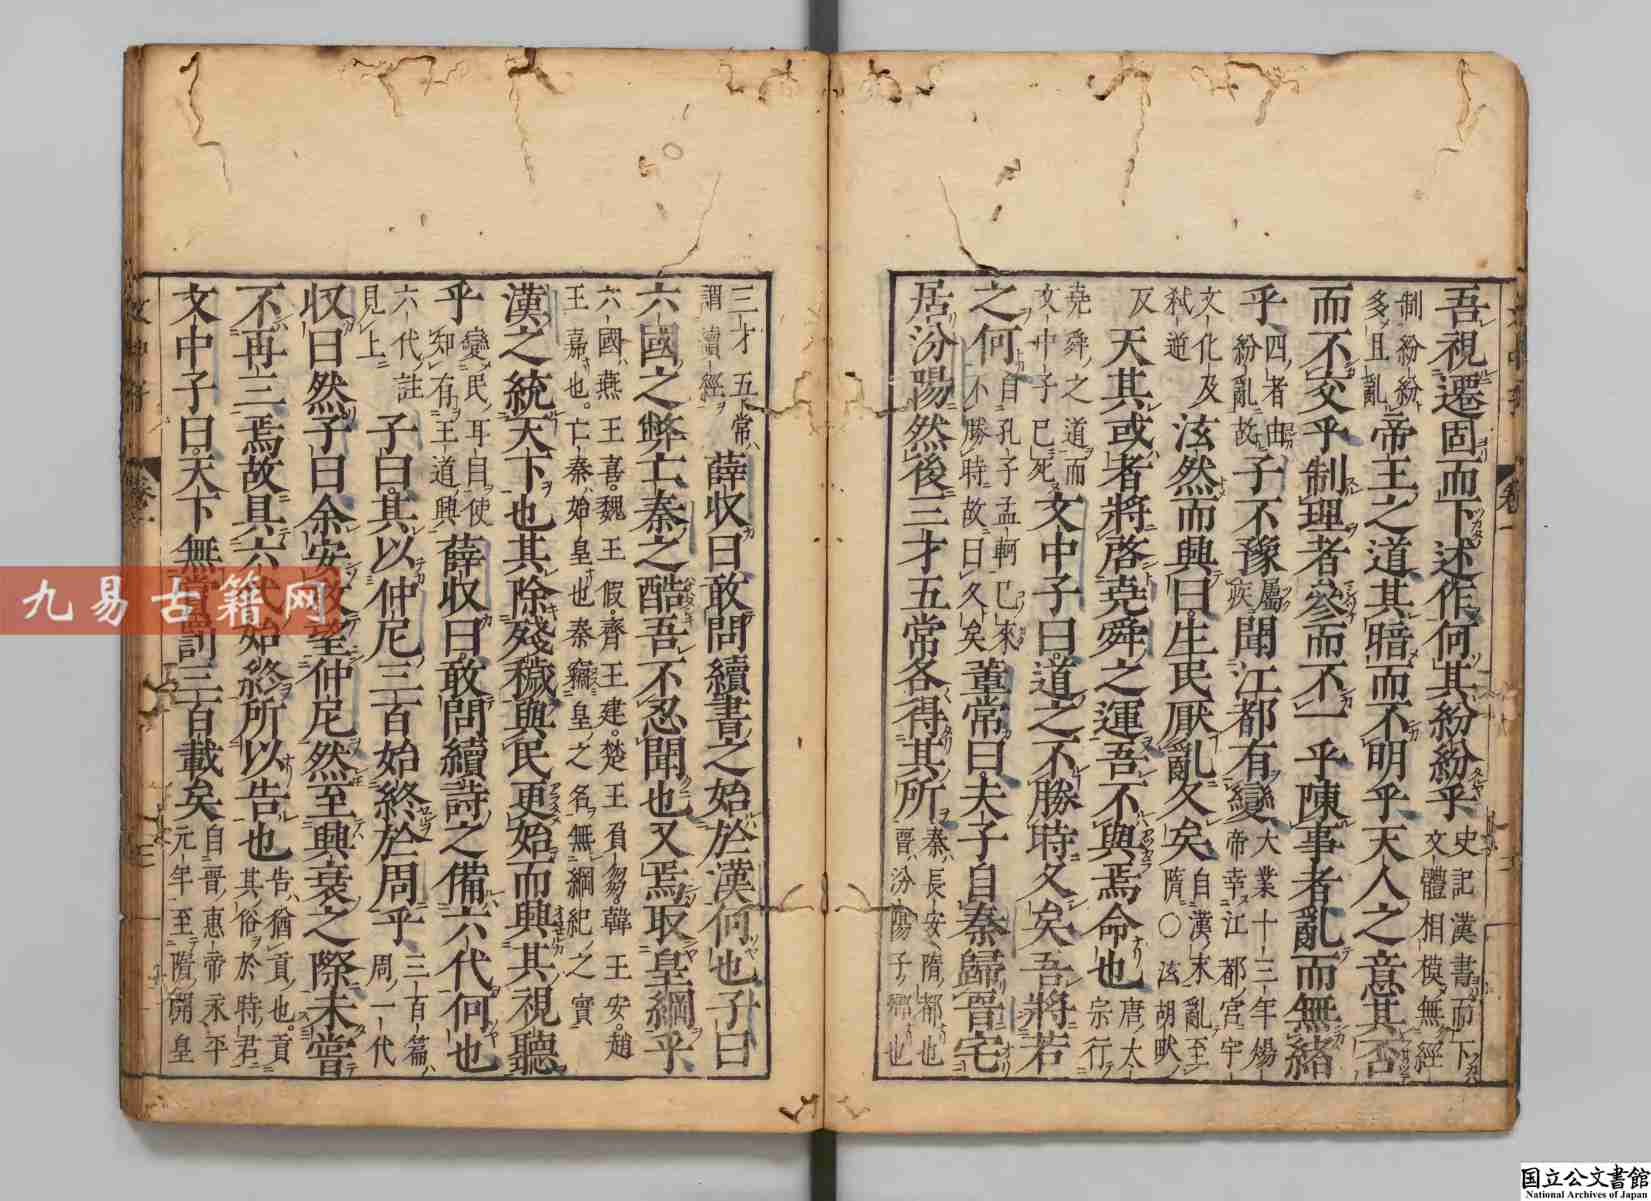 吾視遷固而下述作何其紛紛乎史記漢書而下文體相模無經
制紛紛多且亂帝王之道其暗而不明乎天人之意其否
而不交乎制理者參而不一乎陳事者亂而無緒
乎四者由紛亂故子不豫屬疾聞江都有變大業十三年煬帝幸江都宮宇
文化及弑逆泫然而興曰生民厭亂久矣自漢末亂至隋〇泫胡畎
反天其或者將啓堯舜之運吾不與焉命也唐太宗行
堯舜之道而文中子已死文中子曰道之不勝時久矣吾將若
之何自孔子孟軻已來不勝時故曰久矣董常曰夫子自秦歸晉宅
居汾陽然後三才五常各得其所秦長安隋都也晉汾陽子鄉也
三才五常謂續經薛收曰敢問續書之始於漢何也子曰
六國之弊亡秦之酷吾不忍聞也又焉取皇綱乎
六國燕王喜魏王假齊王建楚王負芻韓王安趙王嘉也亡秦始皇也秦竊皇之名無綱紀之實
漢之統天下也其除殘穢與民更始而興其視聽
乎變民耳目使知有王道興薛收曰敢問續詩之備六代何也
六代註見上子曰其以仲尼三百始終於周乎三百篇周一代
收曰然子曰余安敢望仲尼然至興衰之際未嘗
不再三焉故具六代始終所以告也告猶貢也貢其俗於時君
文中子曰天下無賞罰三百載矣自晉惠帝永平元年至隋開皇
九易古籍网
国立公文書館
National Archives of Japan